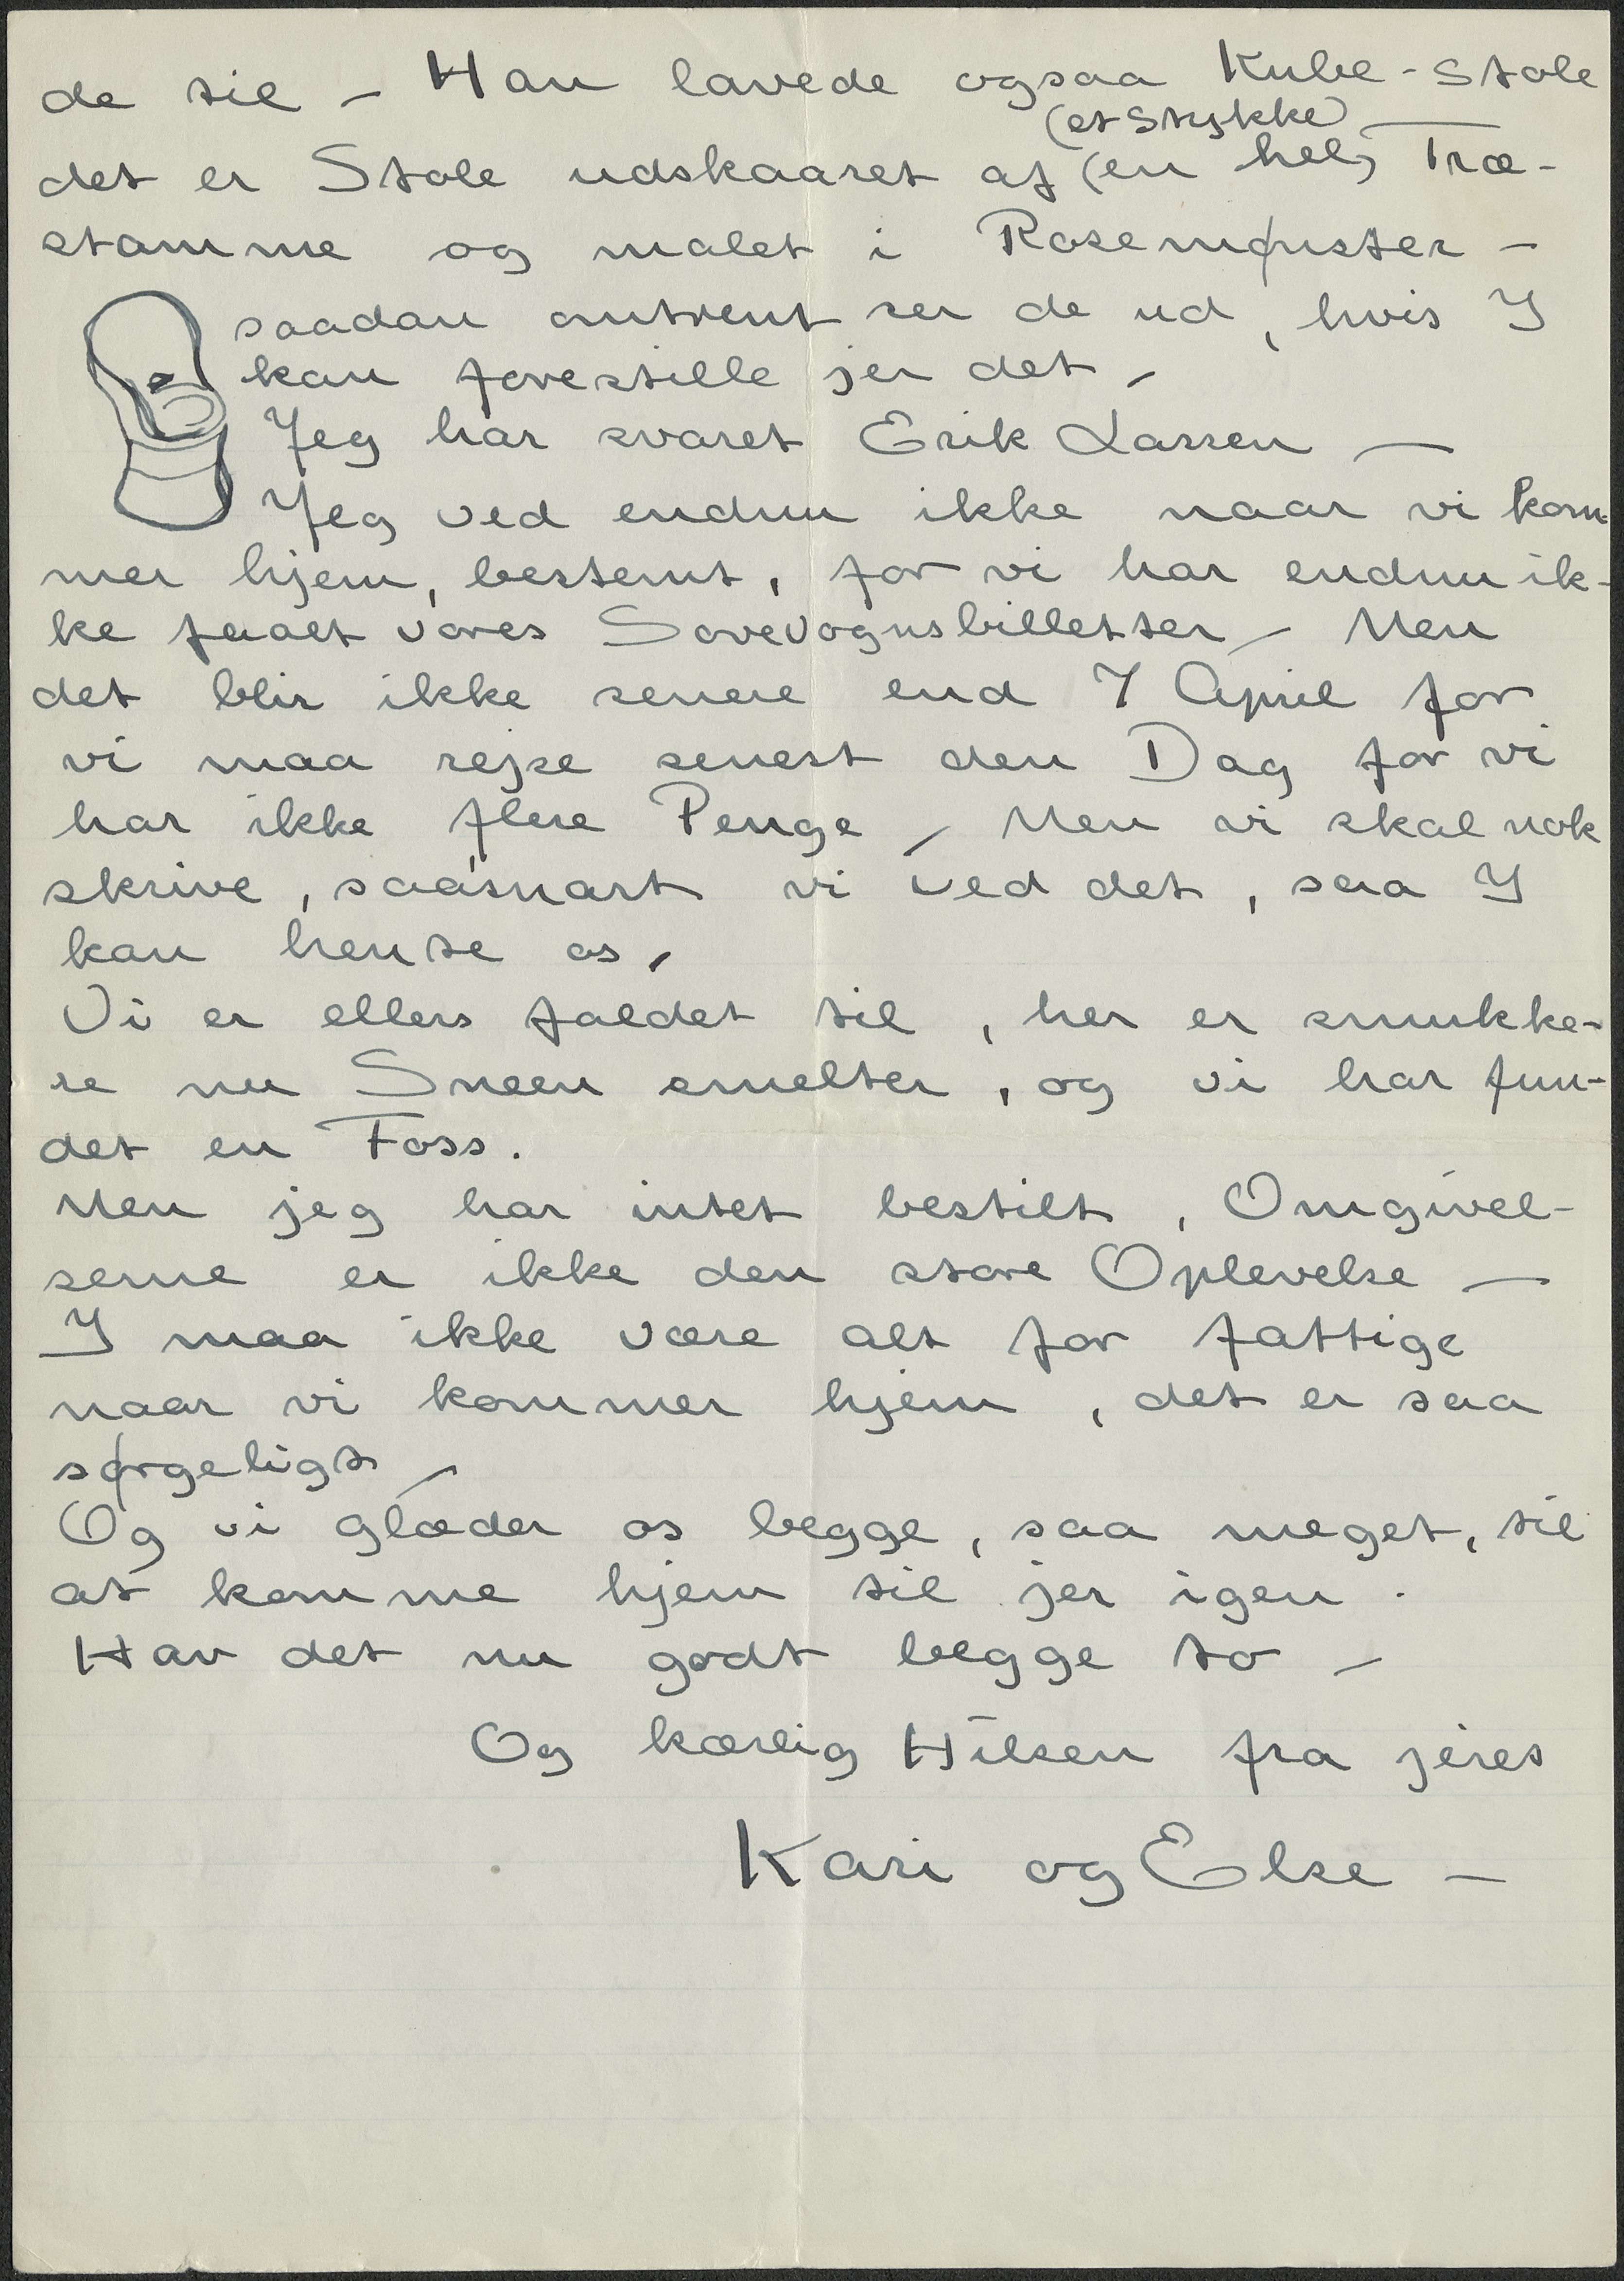 de til – Han lavede ogsaa Kube-Stole
(et Stykke)
det er Stole udskaaret af (en hel) Træ-
stamme og malet i Rosemønster –
saadan omtrent ser de ud, hvis I
kan forestille jer det –
Jeg har svaret Erik Lassen –
Jeg ved endnu ikke naar vi kom-
mer hjem, bestemt, for vi har endnu ik-
ke faaet vores Sovevognsbilletter – Men
det blir ikke senere end 7 April for
vi maa rejse senest den Dag for vi
har ikke flere Penge – Men vi skal nok
skrive, saasnart vi ved det, saa I
kan hente os,
Vi er ellers faldet til, her er smukke-
re nu Sneen smelter, og vi har fun-
det en Foss.
Men jeg har intet bestilt, Omgivel-
serne er ikke den store Oplevelse –
I maa ikke være alt for fattige
naar vi kommer hjem, det er saa
sørgeligt –
Og vi glæder os begge, saa meget, til
at komme hjem til jer igen.
Hav det nu godt begge to –
Og kærlig Hilsen fra jeres
Kari og Else –